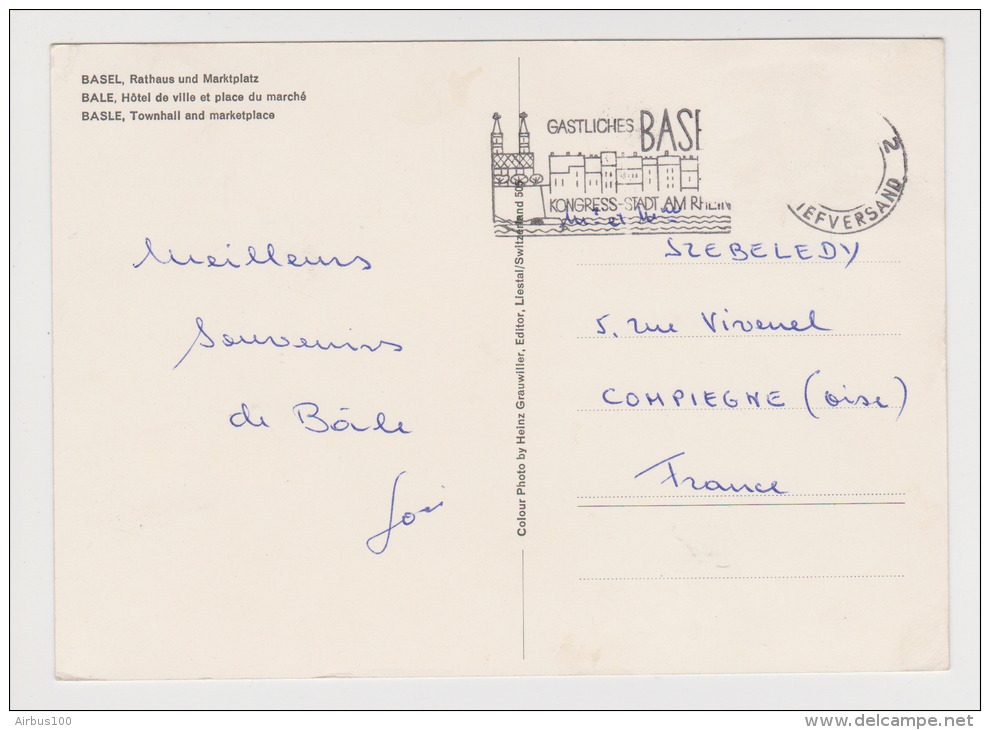 BASEL, Rathaus und Marktplatz
BALE, Hôtel de ville et place du marché
BASLE, Townhall and marketplace
GASTLICHES BASE
KONGRESS-STADT AM RHEIN
2
IEFVERSAND
Meilleurs
Souvenirs
de Bâle
Colour Photo by Heinz Grauwiller, Editor, Liestal/Switzerland 505
Mr et Mme
SZEBELEDY
5, rue Vivenel
COMPIEGNE (oise)
France
Airbus100
www.delcampe.net